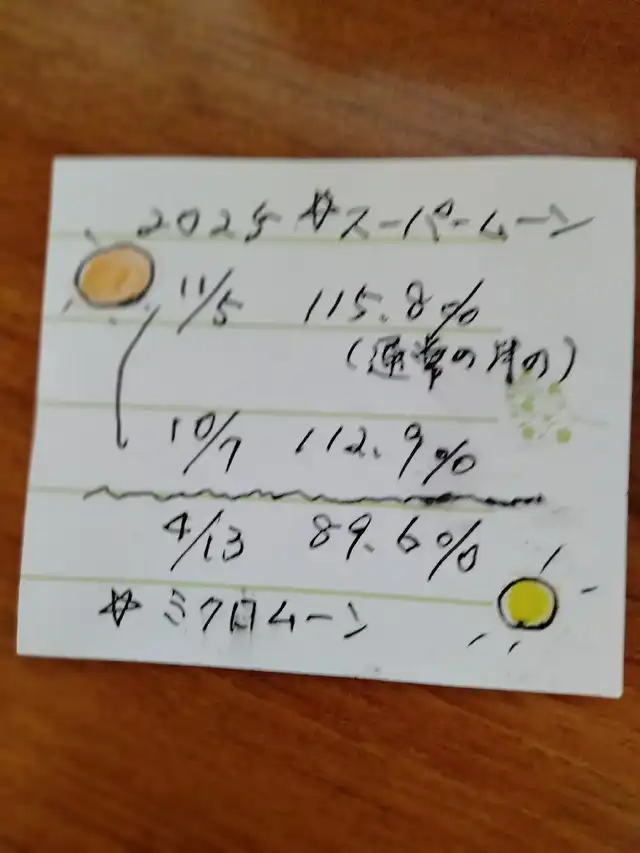 2025 ☆スーパームーン
11/5 115.8%
(通常の月の)
10/7 112.9%
4/13 89.6%
☆ミクロムーン